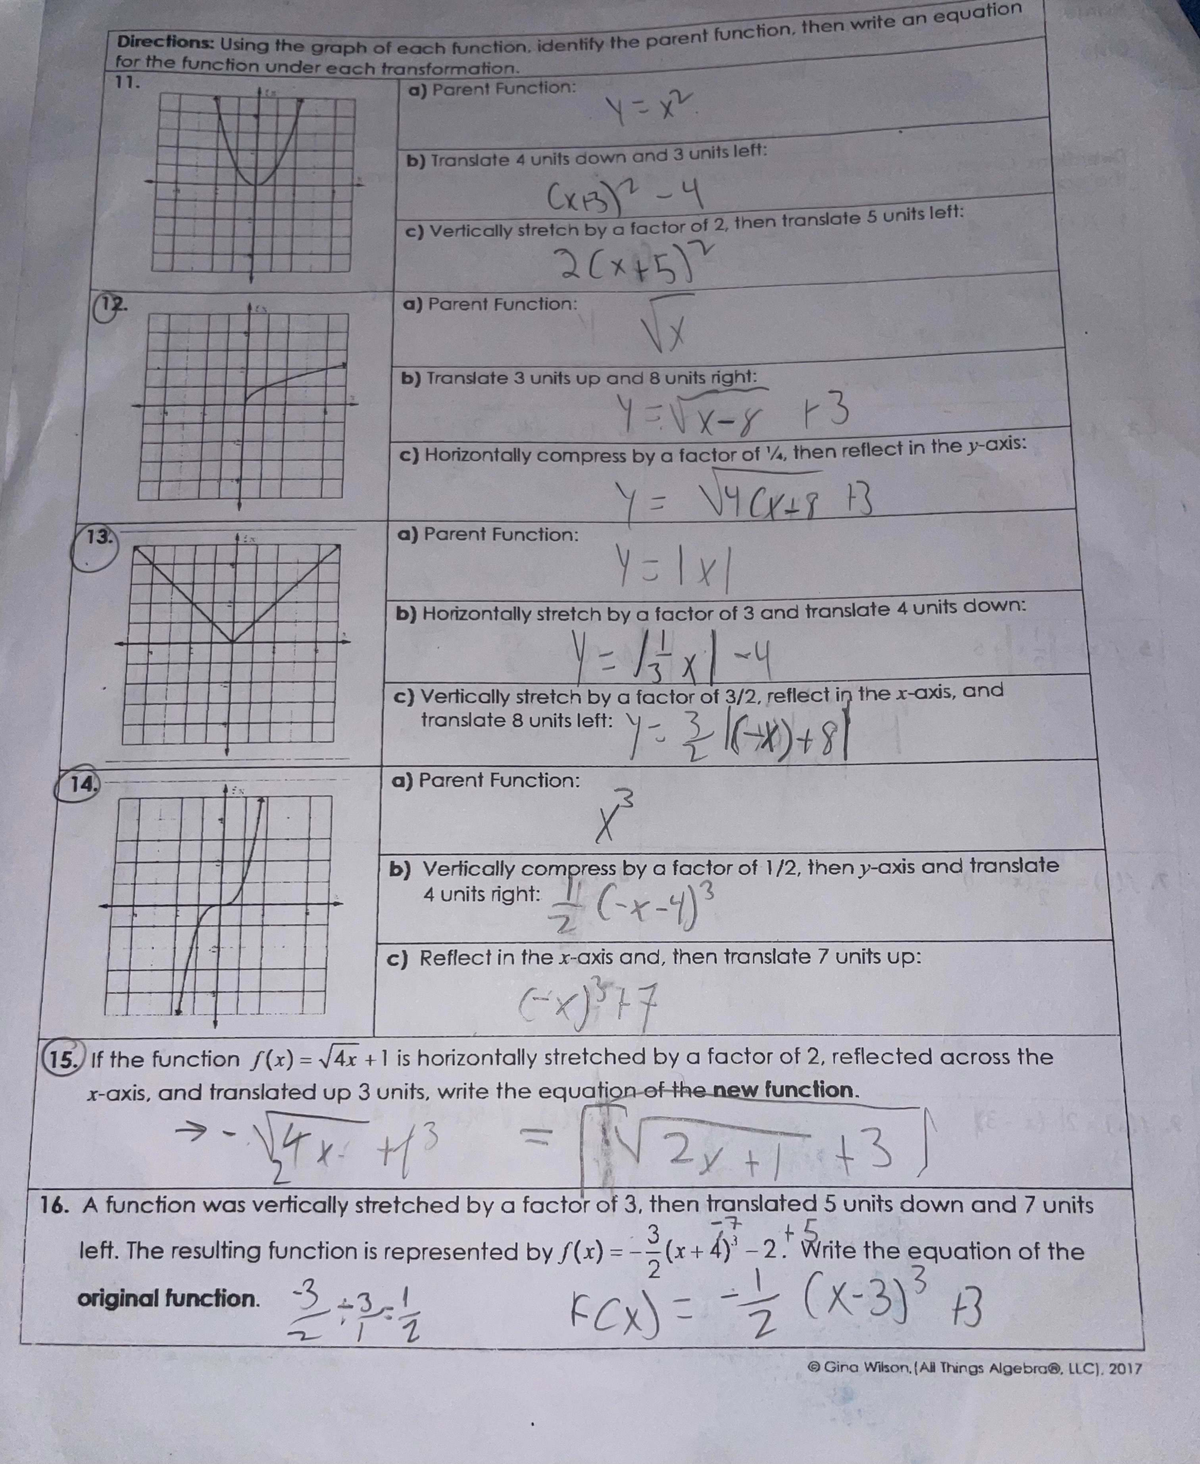 Directions: Using the graph of each function, identify the parent function, then write an equation
for the function under each transformation.
11.
a) Parent Function:
y = x²
b) Translate 4 units down and 3 units left:
(x+3)² - 4
c) Vertically stretch by a factor of 2, then translate 5 units left:
2(x+5)²
12.
a) Parent Function:
√x
b) Translate 3 units up and 8 units right:
y = √x-8 +3
c) Horizontally compress by a factor of ¼, then reflect in the y-axis:
y = √4(x+8 +3
13.
a) Parent Function:
y = |x|
b) Horizontally stretch by a factor of 3 and translate 4 units down:
y = |1/3 x| -4
c) Vertically stretch by a factor of 3/2, reflect in the x-axis, and
translate 8 units left: y = 3/2 |(-x)+8|
14.
a) Parent Function:
x³
b) Vertically compress by a factor of 1/2, then y-axis and translate
4 units right: 1/2 (-x-4)³
c) Reflect in the x-axis and, then translate 7 units up:
(-x)³+7
15. If the function f(x) = √4x + 1 is horizontally stretched by a factor of 2, reflected across the
x-axis, and translated up 3 units, write the equation of the new function.
→ -√4/2 x + 3 = √2x+1 +3
16. A function was vertically stretched by a factor of 3, then translated 5 units down and 7 units
-7 +5
left. The resulting function is represented by f(x) = -3/2 (x + 4)³ - 2. Write the equation of the
original function. -3/2 ÷ 3/1 = 1/2 F(x) = -1/2 (x-3)³ +3
© Gina Wilson (All Things Algebra®, LLC), 2017